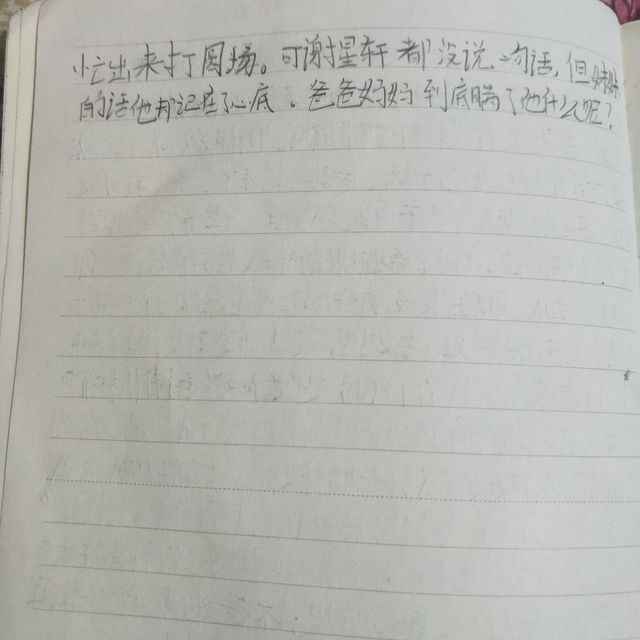 小云出来打圆场。可谢星轩都没说一句话,但妈妈
的话他却记在心底。爸爸妈妈到底瞒了他什么呢?